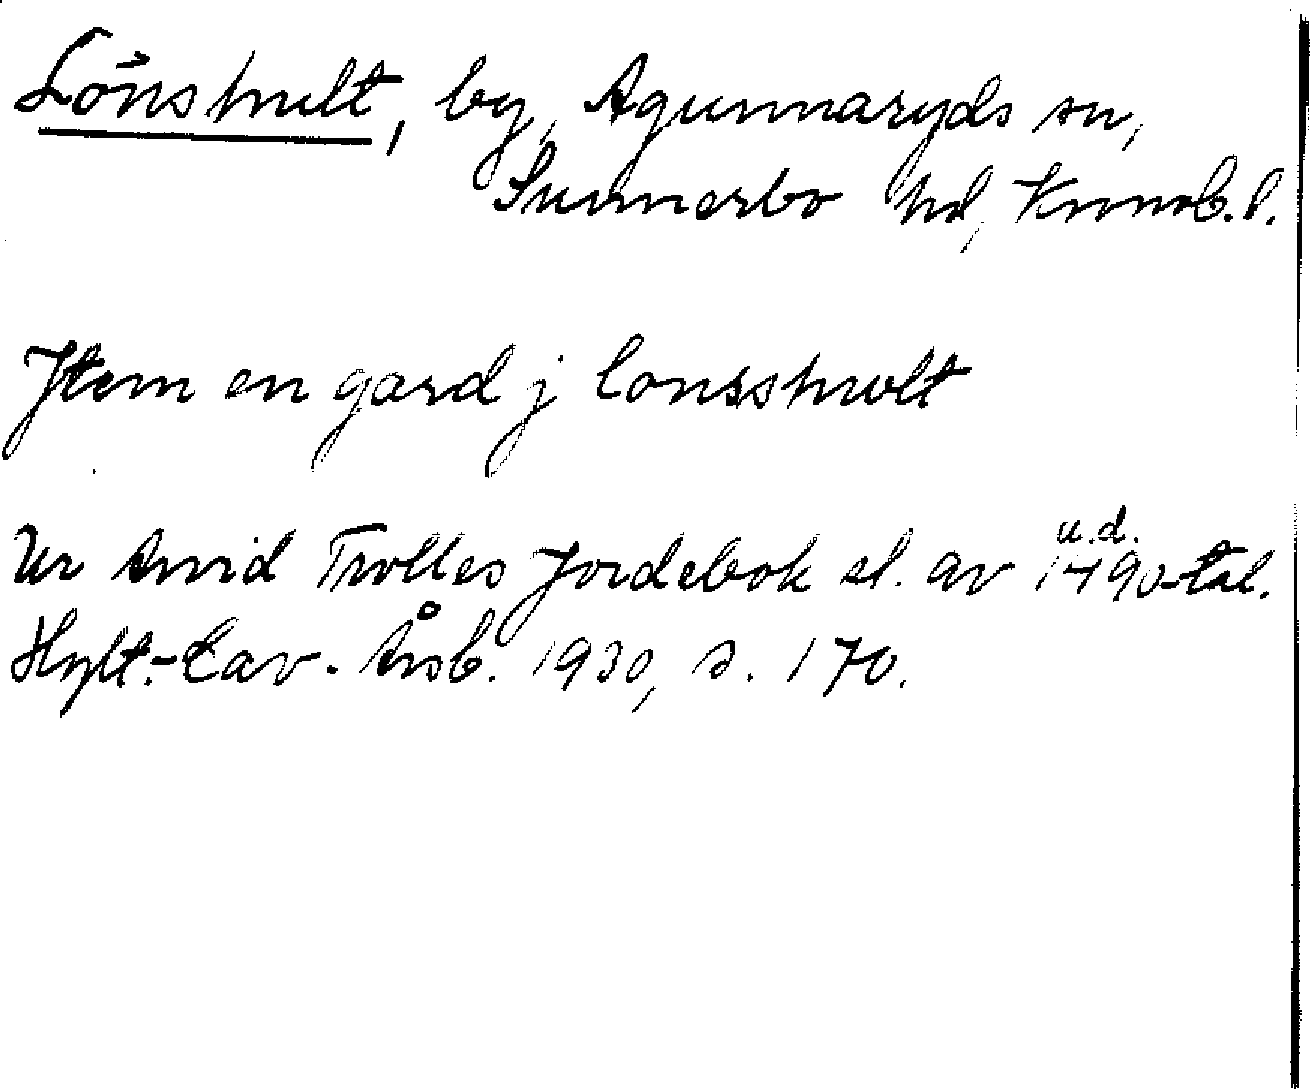 Lönshult, by, Agunnaryds sn,
Sunnerbo hd, Kronob. l.
Jtem en gard j lonsshwlt
Ur Arvid Trolles Jordebok sl. av 1490-tal. u.d.
Hylt.-Cav. Årsb. 1930, s. 170.